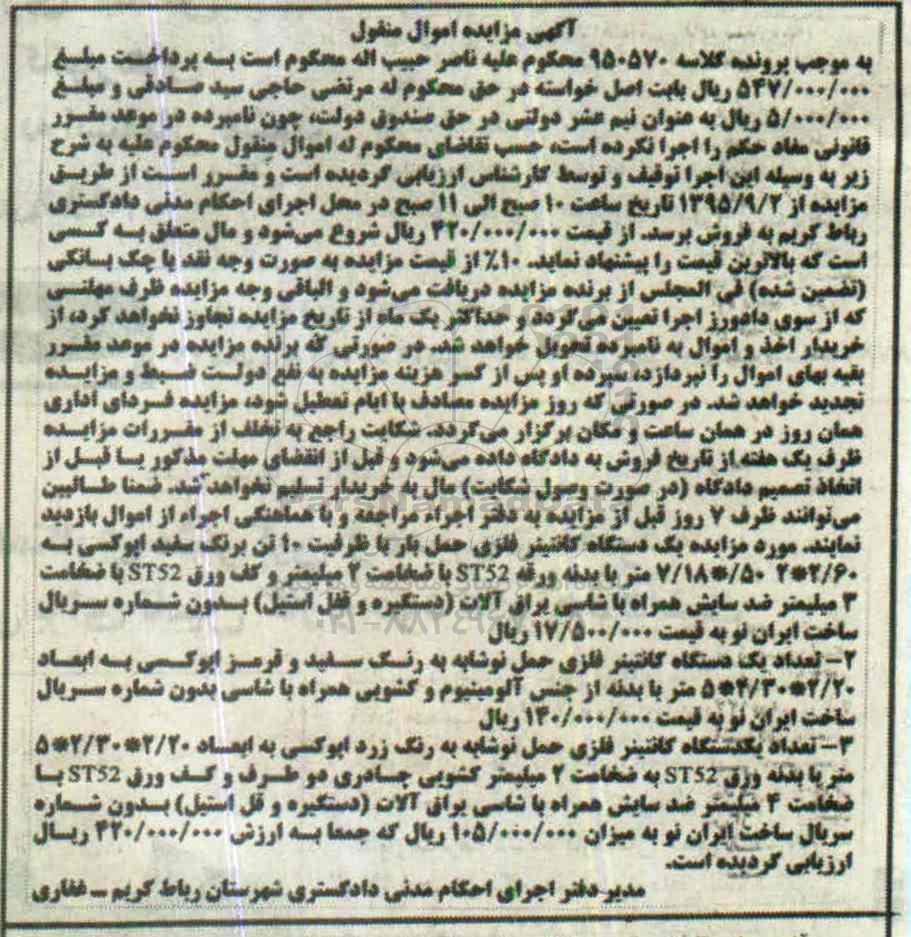 آگهی مزایده اموال منقول
به موجب پرونده کلاسه ۹۵۰۵۷۰ محکوم علیه ناصر حبیب اله محکوم است به پرداخت مبلغ
۵۴۷/۰۰۰/۰۰۰ ریال بابت اصل خواسته در حق محکوم له مرتضی حاجی سید صادقی و مبلغ
۵/۰۰۰/۰۰۰ ریال به عنوان نیم عشر دولتی در حق صندوق دولت، چون نامبرده در موعد مقرر
قانونی مفاد حکم را اجرا نکرده است، حسب تقاضای محکوم له اموال منقول محکوم علیه به شرح
زیر به وسیله این اجرا توقیف و توسط کارشناس ارزیابی گردیده است و مقرر است از طریق
مزایده از ۱۳۹۵/۹/۲ تاریخ ساعت ۱۰ صبح الی ۱۱ صبح در محل اجرای احکام مدنی دادگستری
رباط کریم به فروش برسد. از قیمت ۴۲۰/۰۰۰/۰۰۰ ریال شروع می‌شود و مال متعلق به کسی
است که بالاترین قیمت را پیشنهاد نماید. ۱۰٪ از قیمت مزایده به صورت وجه نقد یا چک بانکی
(تضمین شده) فی المجلس از برنده مزایده دریافت می‌شود و الباقی وجه مزایده ظرف مهلتی
که از سوی دادورز اجرا تعیین می‌گردد و حداکثر یک ماه از تاریخ مزایده تجاوز نخواهد کرد، از
خریدار اخذ و اموال به نامبرده تحویل خواهد شد. در صورتی که برنده مزایده در موعد مقرر
بقیه بهای اموال را نپردازد، سپرده او پس از کسر هزینه مزایده به نفع دولت ضبط و مزایده
تجدید خواهد شد. در صورتی که روز مزایده مصادف با ایام تعطیل شود، مزایده فردای اداری
همان روز در همان ساعت و مکان برگزار می‌گردد. شکایت راجع به تخلف از مقررات مزایده
ظرف یک هفته از تاریخ فروش به دادگاه داده می‌شود و قبل از انقضای مهلت مذکور یا قبل از
اتخاذ تصمیم دادگاه (در صورت وصول شکایت) مال به خریدار تسلیم نخواهد شد. ضمنا طالبین
می‌توانند ظرف ۷ روز قبل از مزایده به دفتر اجراء مراجعه و با هماهنگی اجراء از اموال بازدید
نمایند. مورد مزایده یک دستگاه کانتینر فلزی حمل بار با ظرفیت ۱۰ تن برنگ سفید اپوکسی به
۲/۶۰*۲ ۷/۱۸*/۵۰ متر با بدنه ورقه ST52 با ضخامت ۲ میلیمتر و کف ورق ST52 با ضخامت
۳ میلیمتر ضد سایش همراه با شاسی یراق آلات (دستگیره و قفل استیل) بدون شماره سریال
ساخت ایران نو به قیمت ۱۷/۵۰۰/۰۰۰ ریال
۲- تعداد یک دستگاه کانتینر فلزی حمل نوشابه به رنگ سفید و قرمز اپوکسی به ابعاد
۲/۲۰*۴/۳۰*۵ متر با بدنه از جنس آلومینیوم و کشویی همراه با شاسی بدون شماره سریال
ساخت ایران نو به قیمت ۱۴۰/۰۰۰/۰۰۰ ریال
۳- تعداد یکدستگاه کانتینر فلزی حمل نوشابه به رنگ زرد اپوکسی به ابعاد ۲/۲۰*۲/۳۰*۵
متر با بدنه ورق ST52 به ضخامت ۲ میلیمتر کشویی چادری دو طرف و کف ورق ST52 با
ضخامت ۴ میلیمتر ضد سایش همراه با شاسی یراق آلات (دستگیره و قل استیل) بدون شماره
سریال ساخت ایران نو به میزان ۱۰۵/۰۰۰/۰۰۰ ریال که جمعا به ارزش ۴۲۰/۰۰۰/۰۰۰ ریال
ارزیابی گردیده است.
مدیر دفتر اجرای احکام مدنی دادگستری شهرستان رباط کریم ــ غفاری